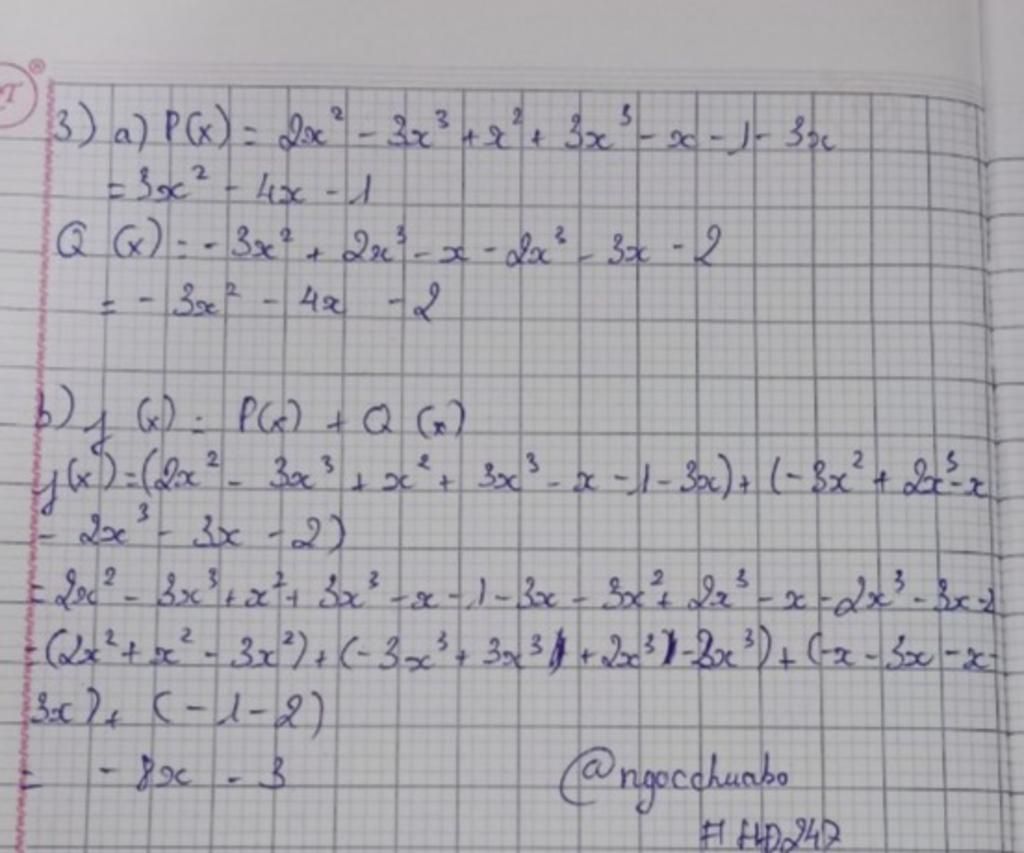 3) a) P(x) = 2x² - 3x³ + x² + 3x³ - x - 1 - 3x
= 3x² - 4x - 1
Q (x) = - 3x² + 2x³ - x - 2x³ - 3x - 2
= - 3x² - 4x - 2
b) y (x) = P(x) + Q (x)
y(x) = (2x² - 3x³ + x² + 3x³ - x - 1 - 3x) + (-3x² + 2x³ - x
- 2x³ - 3x - 2)
= 2x² - 3x³ + x² + 3x³ - x - 1 - 3x - 3x² + 2x³ - x - 2x³ - 3x - 2
= (2x² + x² - 3x²) + (-3x³ + 3x³ + 2x³ - 2x³) + (-x - 3x - x -
3x) + (-1 - 2)
= - 8x - 3
@ngocchuabo